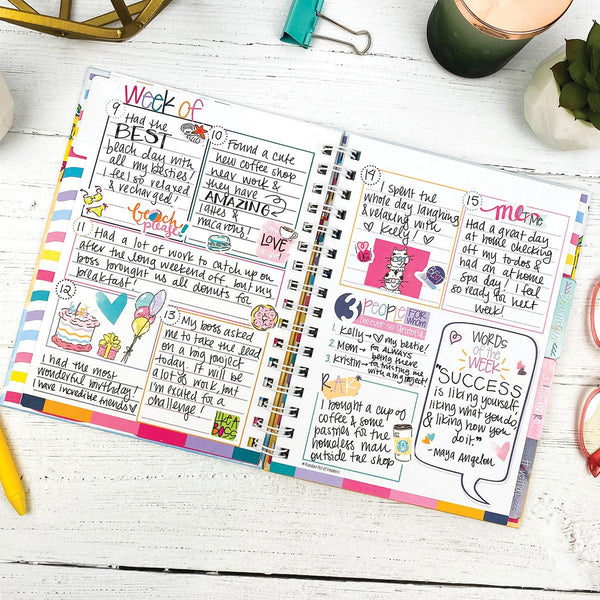 Week of
9
Had the
BEST
beach day with
all my besties!
I feel so relaxed
& recharged!
beach
please!
10
Found a cute
new coffee shop
near work &
they have
AMAZING
lattes &
macarons!
LOVE
11
Had a lot of work to catch up on
after the long weekend off, but my
boss brought us all donuts for
breakfast!
12
I had the most
wonderful birthday!
I have incredible friends
13
My boss asked
me to take the lead
on a big project
today. It will be
a lot of work, but
I'm excited for a
challenge!
LIKE A
BOSS
14
I spent the
whole day laughing
& relaxing with
Kelly
15
me TIME
Had a great day
at home checking
off my to-dos &
had an at home
spa day! I feel
so ready for next
week!
3 PEOPLE FOR WHOM
I'M EVER SO GRATEFUL
1. Kelly → my bestie!
2. Mom → for ALWAYS
being there
3. Kristin → for trusting me
with a big project!
RAK
I bought a cup of
coffee & some
pastries for the
homeless man
outside the shop
*Random Act of Kindness
WORDS
of the
WEEK
"SUCCESS
is liking yourself,
liking what you do,
& liking how you
do it."
- Maya Angelou